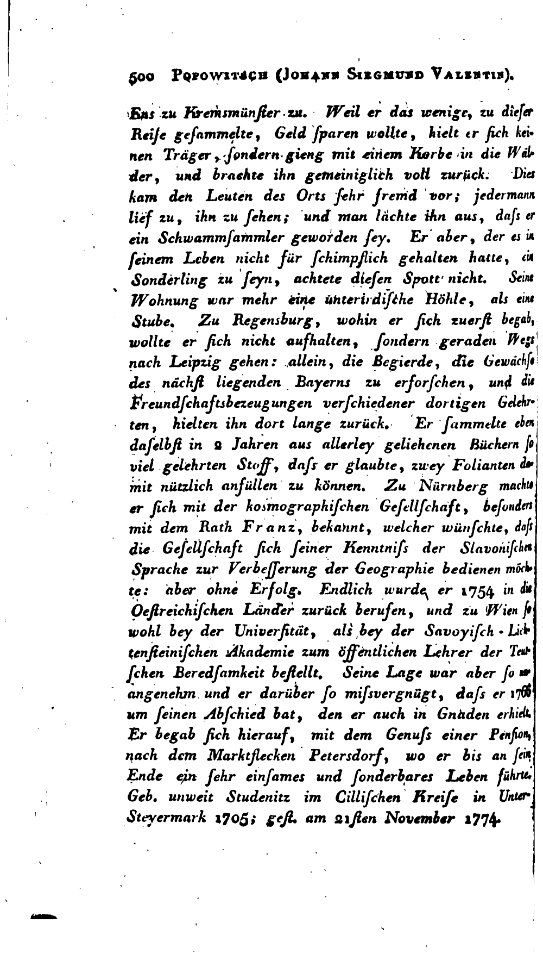 500 POPOWITSCH (JOHANN SIEGMUND VALENTIN).
Ens zu Kremsmünſter zu. Weil er das wenige, zu dieſer
Reiſe geſammelte, Geld ſparen wollte, hielt er ſich kei-
nen Träger, ſondern gieng mit einem Korbe in die Wäl-
der, und brachte ihn gemeiniglich voll zurück. Dies
kam den Leuten des Orts ſehr fremd vor; jedermann
lief zu, ihn zu ſehen; und man lachte ihn aus, daſs er
ein Schwammſammler geworden ſey. Er aber, der es in
ſeinem Leben nicht für ſchimpflich gehalten hatte, ein
Sonderling zu ſeyn, achtete dieſen Spott nicht. Seine
Wohnung war mehr eine unterirdiſche Höhle, als eine
Stube. Zu Regensburg, wohin er ſich zuerſt begab,
wollte er ſich nicht aufhalten, ſondern geraden Wegs
nach Leipzig gehen: allein, die Begierde, die Gewächſe
des nächſt liegenden Bayerns zu erforſchen, und die
Freundſchaftsbezeugungen verſchiedener dortigen Gelehr-
ten, hielten ihn dort lange zurück. Er ſammelte eben
daſelbſt in 2 Jahren aus allerley geliehenen Büchern ſo
viel gelehrten Stoff, daſs er glaubte, zwey Folianten da-
mit nützlich anfüllen zu können. Zu Nürnberg machte
er ſich mit der kosmographiſchen Geſellſchaft, beſonders
mit dem Rath Franz, bekannt, welcher wünſchte, daſs
die Geſellſchaft ſich ſeiner Kenntniſs der Slavoniſchen
Sprache zur Verbeſſerung der Geographie bedienen möch-
te: aber ohne Erfolg. Endlich wurde er 1754 in die
Oeſtreichiſchen Länder zurück berufen, und zu Wien ſo
wohl bey der Univerſität, als bey der Savoyiſch-Lich-
tenſteiniſchen Akademie zum öffentlichen Lehrer der Teut-
ſchen Beredſamkeit beſtellt. Seine Lage war aber ſo un-
angenehm und er darüber ſo miſsvergnügt, daſs er 1766
um ſeinen Abſchied bat, den er auch in Gnaden erhielt.
Er begab ſich hierauf, mit dem Genuſs einer Penſion,
nach dem Marktflecken Petersdorf, wo er bis an ſein
Ende ein ſehr einſames und ſonderbares Leben führte.
Geb. unweit Studenitz im Cilliſchen Kreiſe in Unter-
Steyermark 1705; geſt. am 21ſten November 1774.